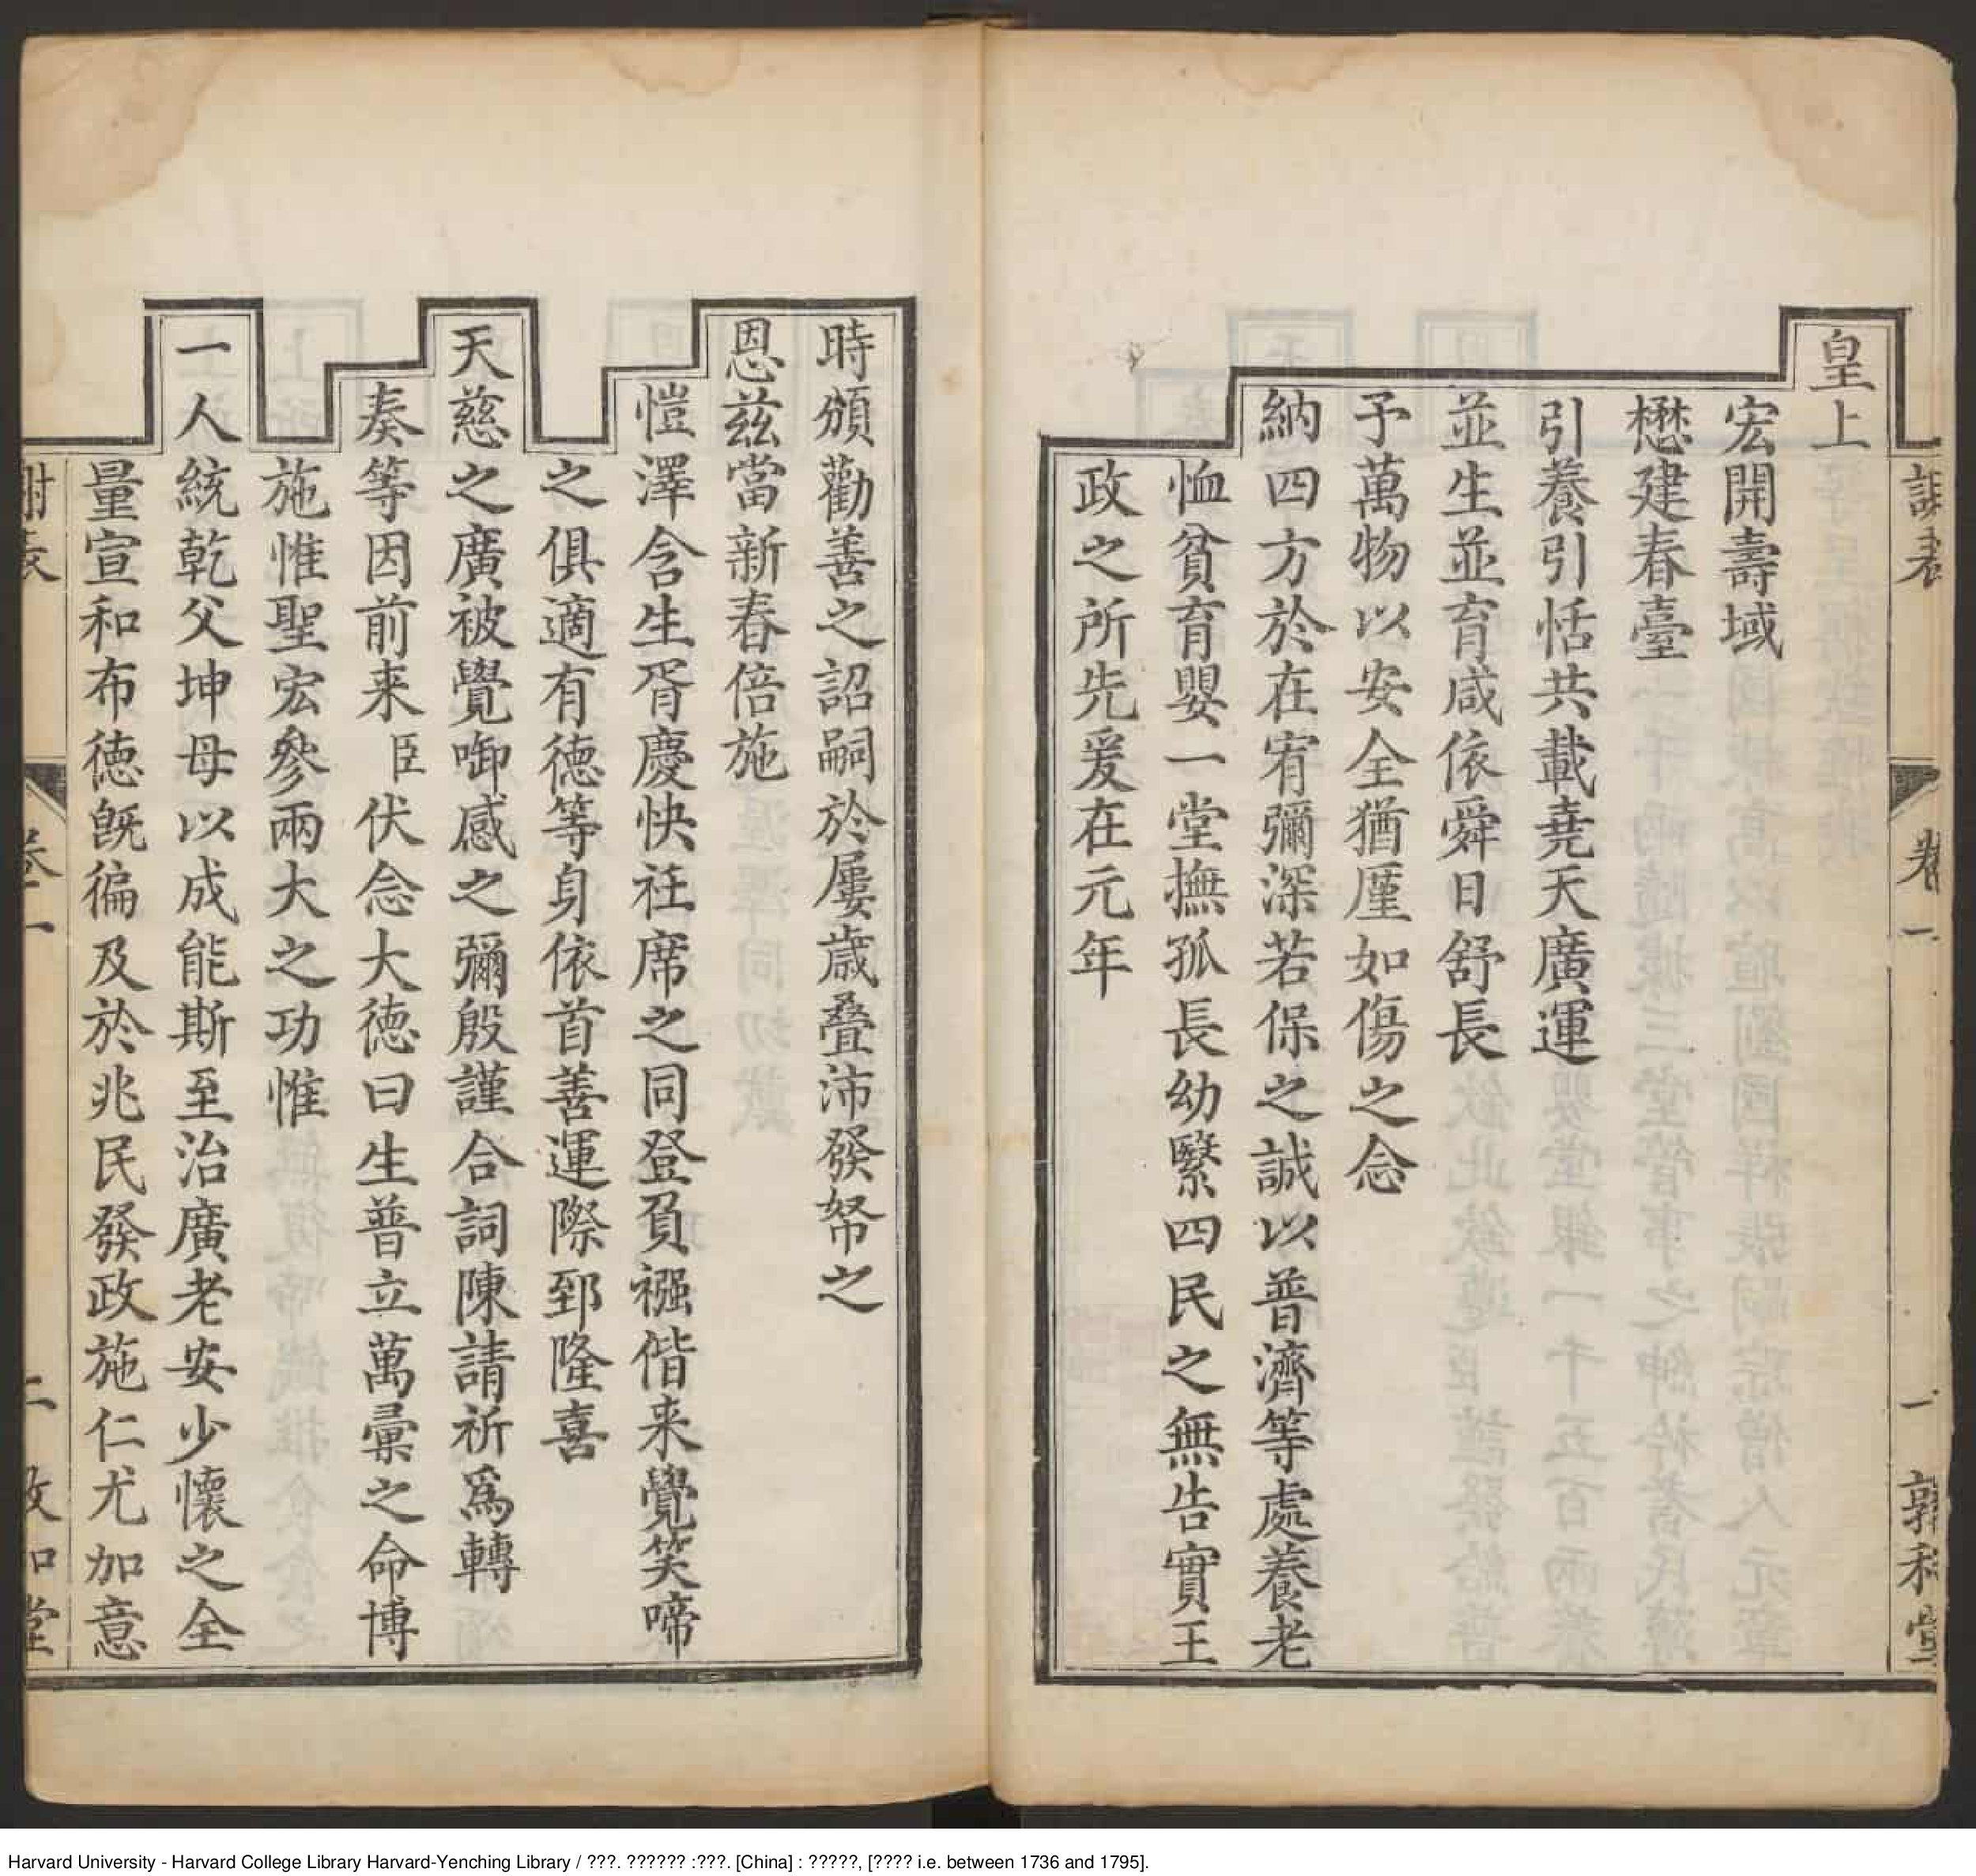 皇上
宏開壽域
懋建春臺
引養引恬共載堯天廣運
並生並育咸依舜日舒長
予萬物以安全猶厪如傷之念
納四方於在宥彌深若保之誠以普濟等處養老
恤貧育嬰一堂撫孤長幼繄四民之無告實王
政之所先爰在元年
時頒勸善之詔嗣於屢歲疊沛發帑之
恩茲當新春倍施
愷澤含生胥慶快衽席之同登負襁偕来覺笑啼
之俱適有徳等身依首善運際郅隆喜
天慈之廣被覺啣感之彌殷謹合詞陳請祈爲轉
奏等因前来臣伏念大徳曰生普立萬彙之命博
施惟聖宏參兩大之功惟
一人統乾父坤母以成能斯至治廣老安少懷之全
量宣和布徳旣徧及於兆民發政施仁尤加意
謝表
卷一
一
敦和堂
謝表
卷一
二
敦和堂
Harvard University - Harvard College Library Harvard-Yenching Library / ???. ?????? :???. [China] : ?????, [???? i.e. between 1736 and 1795].